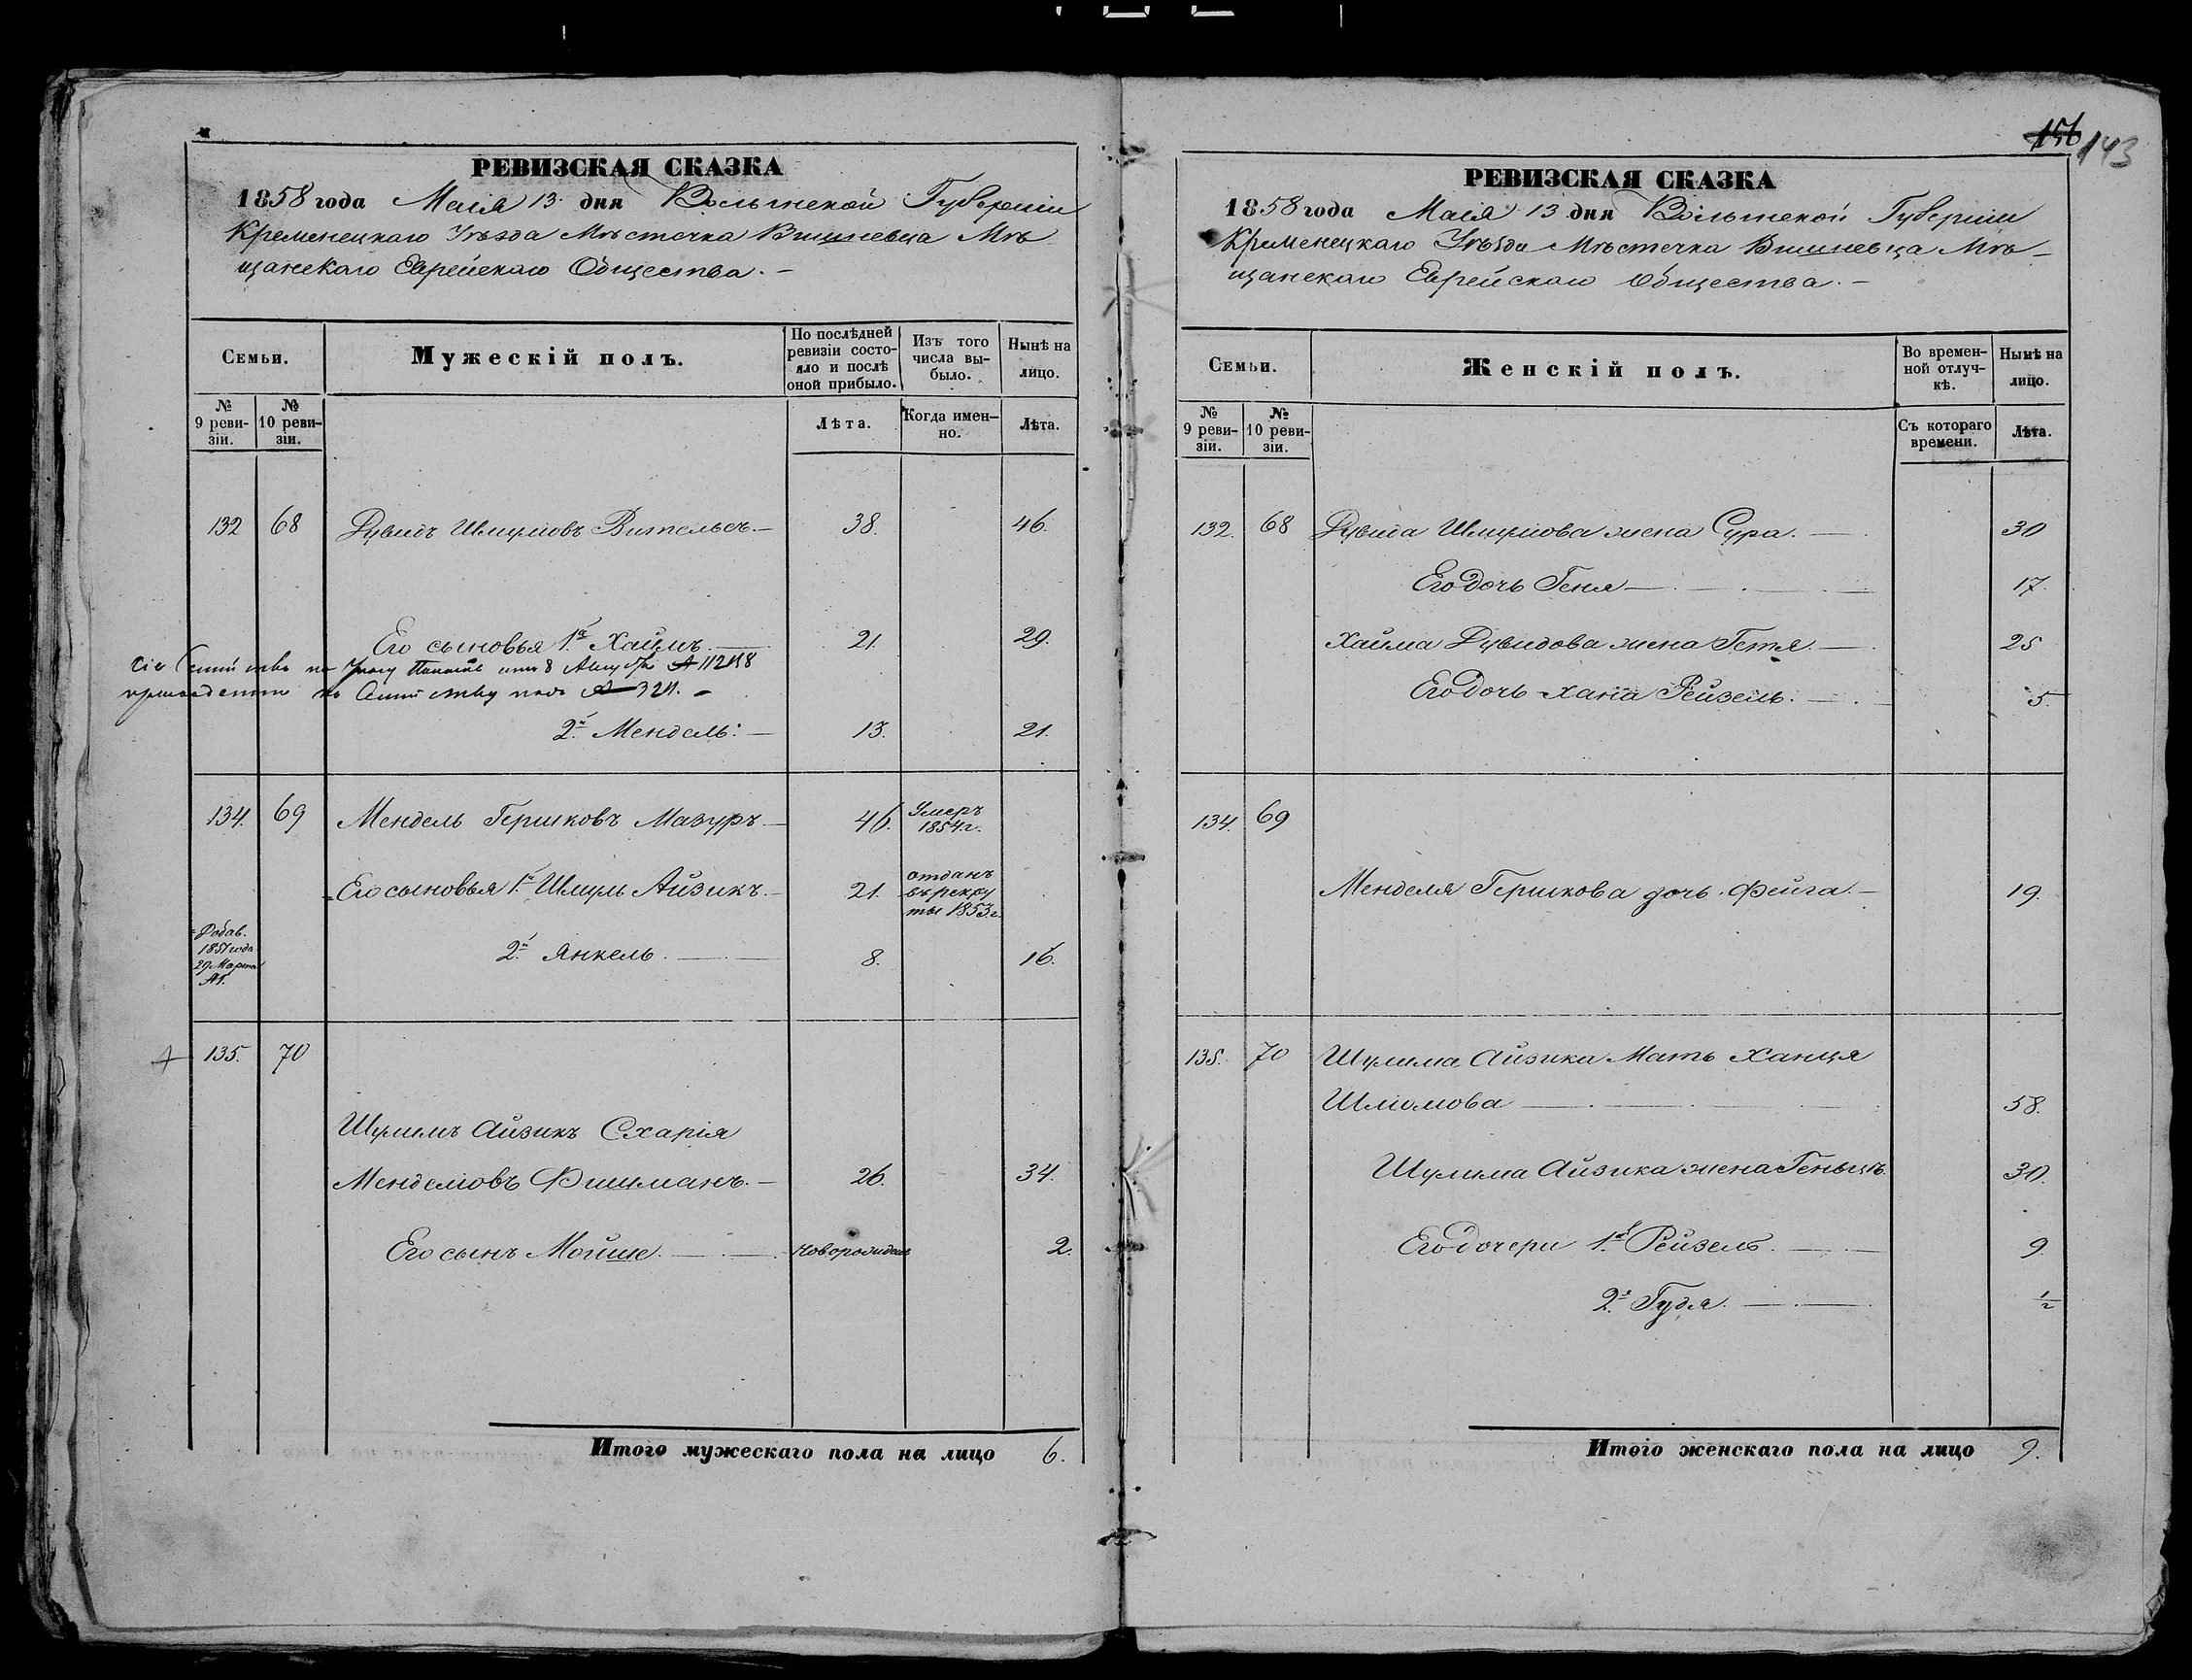 РЕВИЗСКАЯ СКАЗКА
1858 года Маія 13 дня Волынской Губерніи
Кременецкаго Уѣзда Мѣстечка Вишневца Мѣ
щанскаго Еврейскаго Общества. –
Семьи.
Мужескій полъ.
По послѣдней ревизіи состояло и послѣ оной прибыло.
Изъ того числа выбыло.
Нынѣ на лицо.
№ 9 ревизіи.
№ 10 ревизіи.
Лѣта.
Когда именно.
Лѣта.
132 68 Дувидъ Шмулювъ Вительсъ. – 38. 46.
Его сыновья 1й Хаимъ. 21. 29.
Сіе по Указу Палаты отъ 8 № 11248
къ Семейству подъ № 321. –
2й Мендель: – 13. 21.
134. 69 Мендель Гершковъ Мазуръ – 46. Умеръ 1854 г.
Его сыновья 1й Шмуль Айзикъ. – 21. отданъ въ рекру ты 1853 г.
Добав. 1851 года 29 Марта №1.
2й Янкель. 8. 16.
135. 70
Шулимъ Айзикъ Схарія
Менделіовъ Фишманъ. – 26. 34.
Его сынъ Мойше. новорожденъ 2.
Итого мужескаго пола на лицо 6.
156 143
РЕВИЗСКАЯ СКАЗКА
1858 года Маія 13 дня Волынской Губерніи
Кременецкаго Уѣзда Мѣстечка Вишневца Мѣ –
щанскаго Еврейскаго Общества. –
Семьи.
Женскій полъ.
Во временной отлучкѣ.
Нынѣ на лицо.
№ 9 ревизіи.
№ 10 ревизіи.
Съ котораго времени.
Лѣта.
132. 68 Дувида Шмулюва жена Сура. 30
Его дочь Геня 17.
Хаима Дувидова жена Гетя. 25
Его дочь Хана Рейзель. 5.
134. 69
Менделя Гершкова дочь Фейга. – 19.
135. 70 Шулима Айзика Мать Ханця
Шліомова 58.
Шулима Айзика жена Геньця. 30.
Его дочери 1я Рейзель. 9.
2я Гудя. 1/2
Итого женскаго пола на лицо 9.